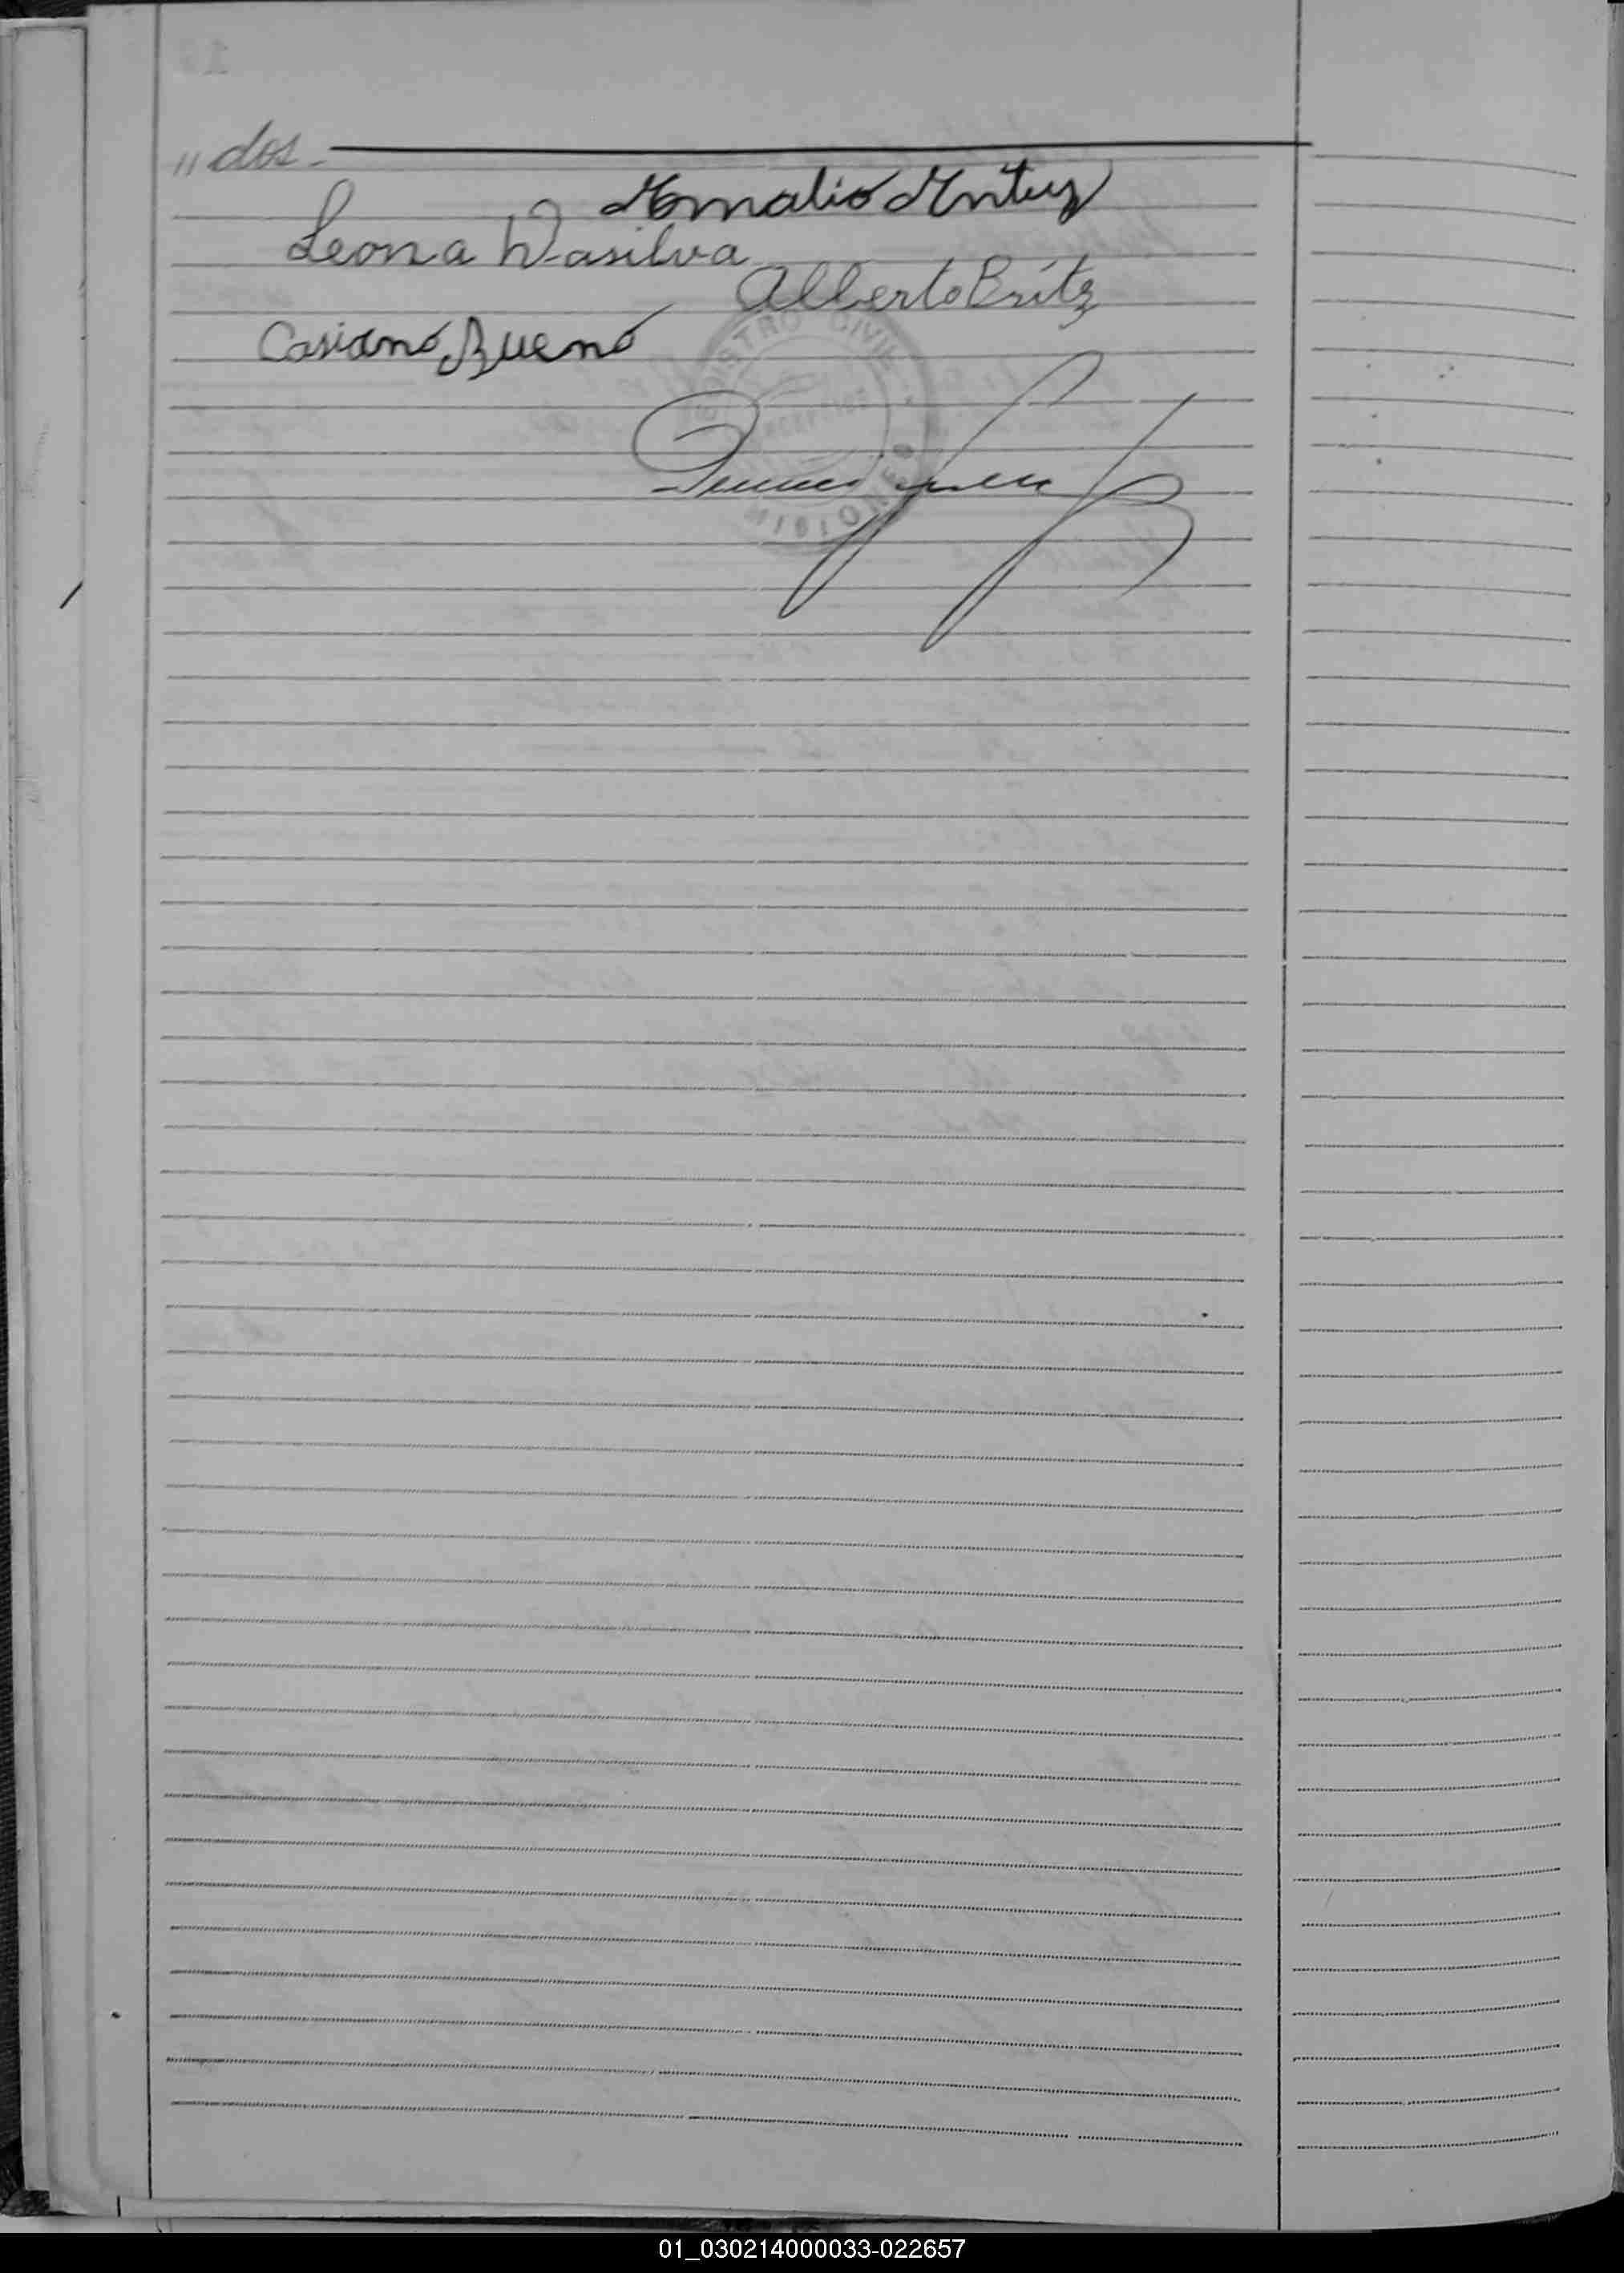 "dos.
Amalio
Leona Wasilva
Alberto Britz
Casiano Bueno
REGISTRO CIVIL
MISIONES
01_030214000033-022657